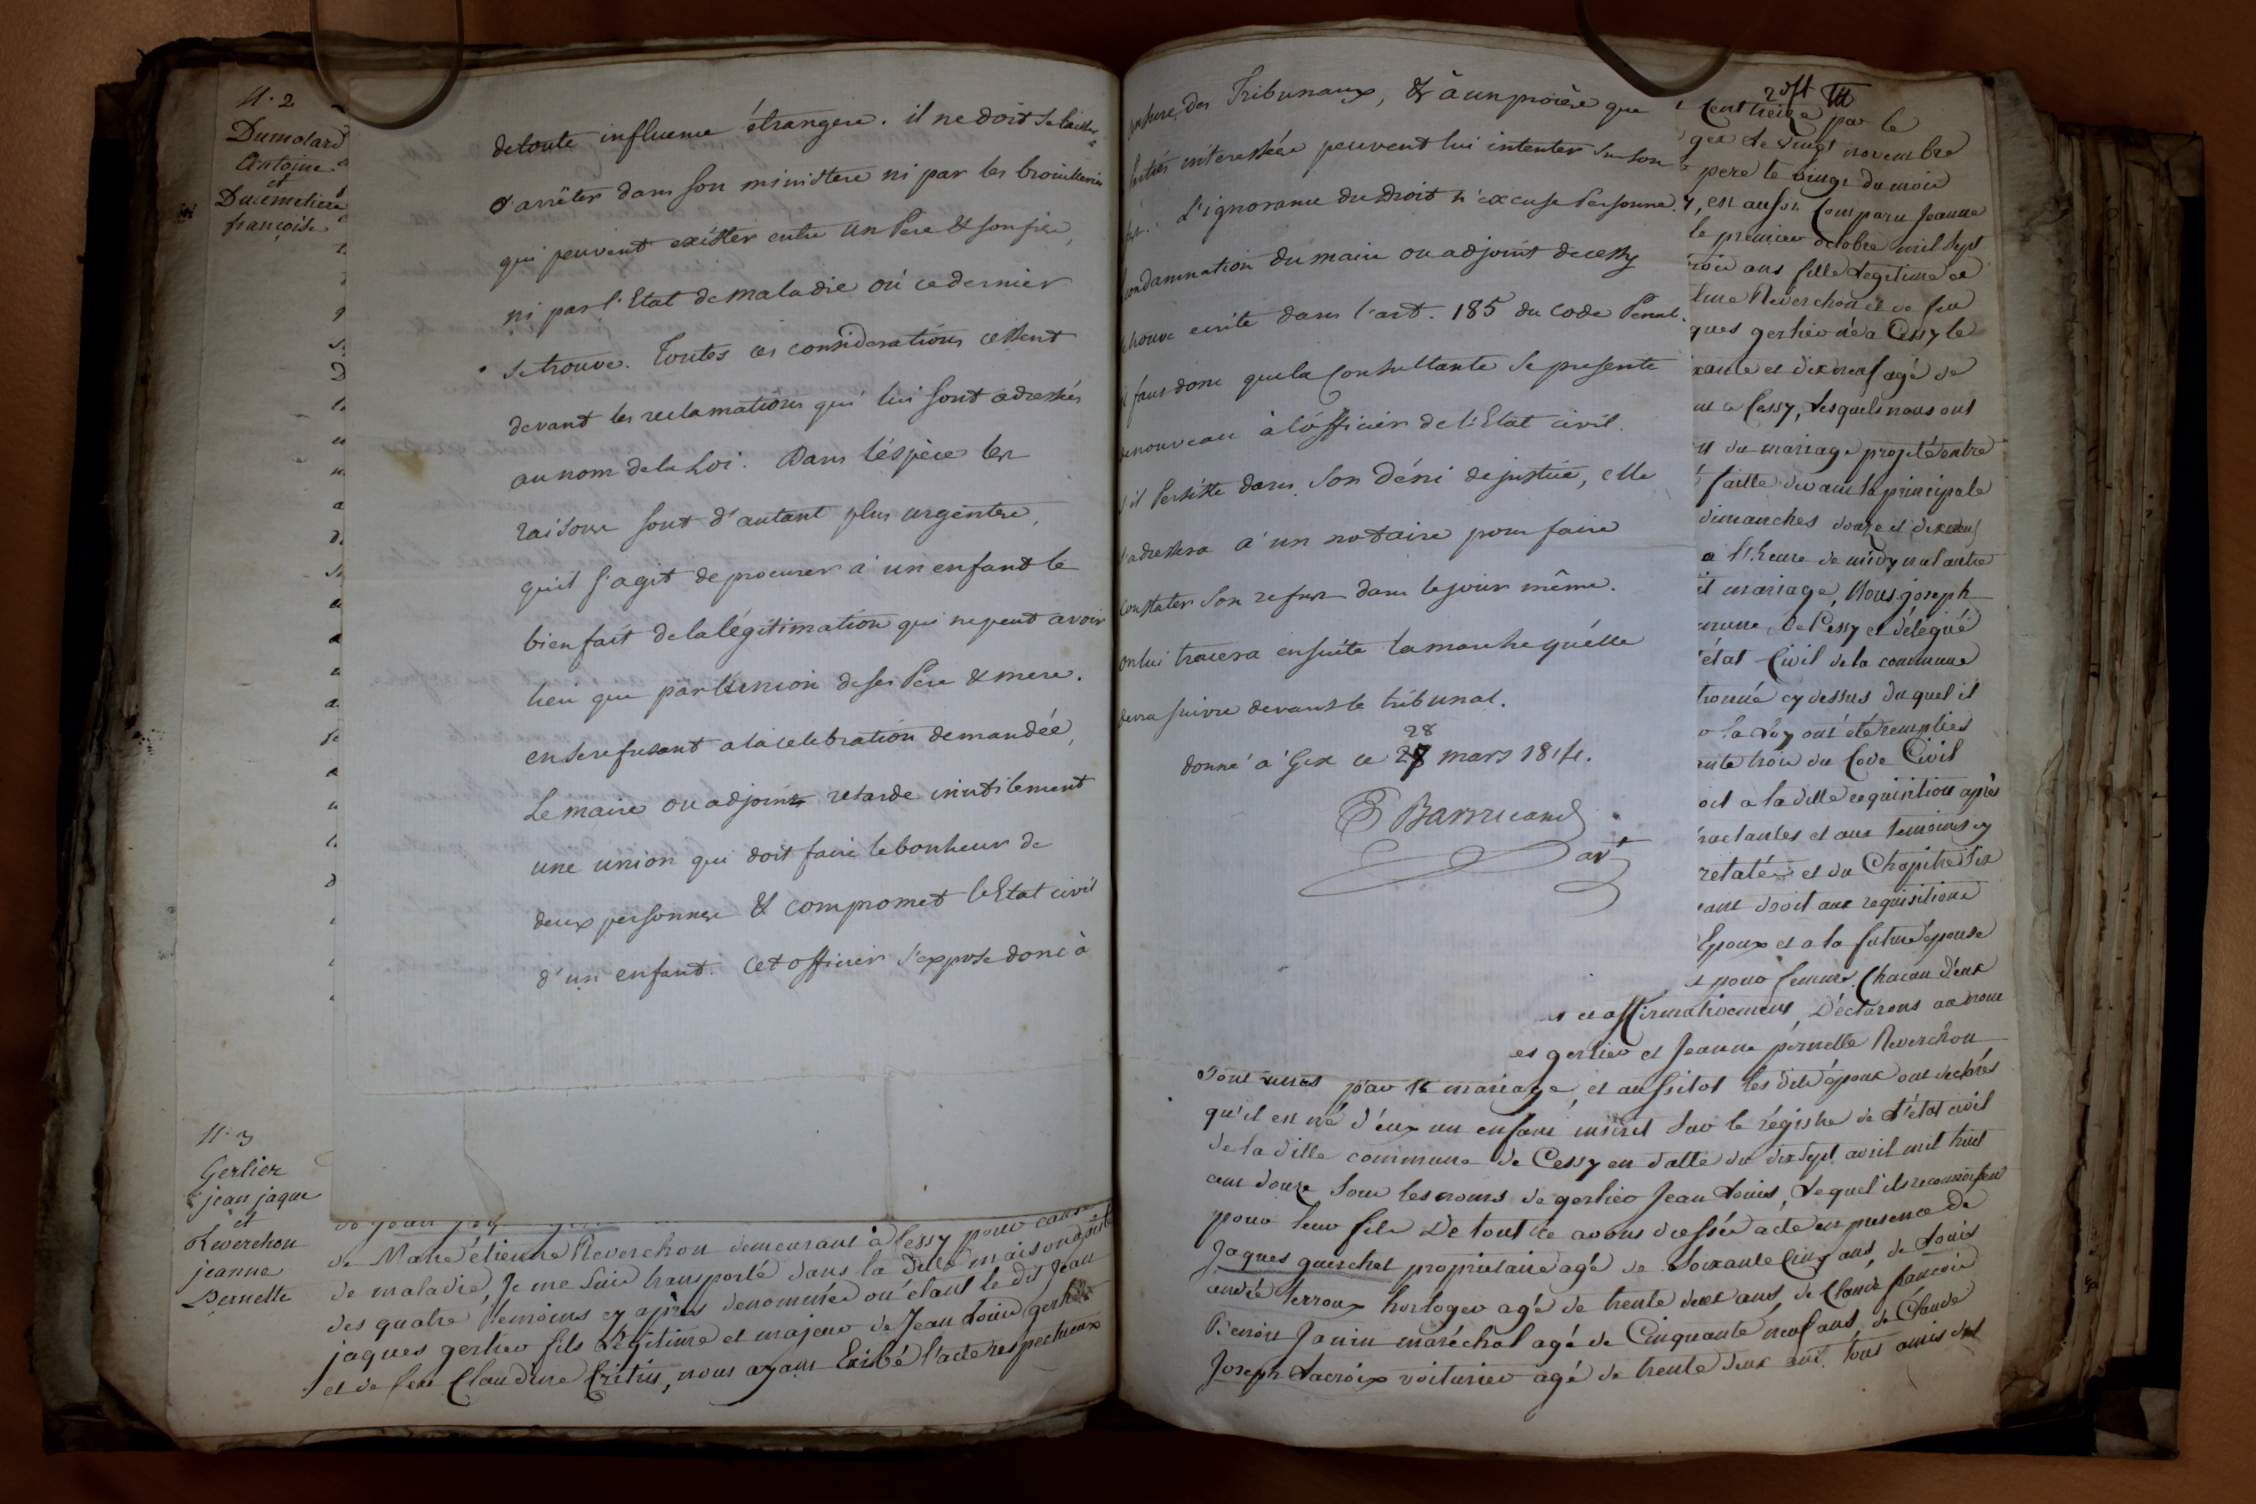 N. 2
Dumolard
Antoine
et
Ducimetiere
françoise
de toute influence étrangere. il ne doit se laisser
d'arrêter dans son ministere ni par les brouilleries
qui peuvent exister entre un Pere & son fils,
ni par l'Etat de maladie où ce dernier
se trouve. Toutes ces considerations cessent
devant les reclamations qui lui sont adressées
au nom de la Loi. Dans l'éspèce les
raisons sont d'autant plus urgentes,
qu'il s'agit de procurer à un enfant le
bienfait de la légitimation qui ne peut avoir
lieu que par l'union de ses Pere & mere.
en se refusant a la celebration demandée,
Le maire ou adjoint retarde inutilement
une union qui doit faire le bonheur de
deux personnes & compromet l'Etat civil
d'un enfant. Cet officier s'expose donc à
N. 3
Gerlier
jean jaque
et
Reverchon
jeanne
Pernette
de Marie étienne Reverchon demeurant à Cessy pour cause
de maladie, Je me suis transporté dans la ditte maison assisté
des quatre temoins cy après denommés où étant le dit Jean
jaques gerlier fils Légitime et majeur de Jean Louis gerlier
et de feue Claudine Critin, nous ayant Exibé l'acte respectueux
censure des Tribunaux, & à un procès que
parties interessées peuvent lui intenter sur son
L'ignorance du Droit n'excuse Personne.
Condamnation du maire ou adjoint de cessy
trouve ecrite dans l'art. 185 du Code Penal.
il faut donc que la Consultante se presente
de nouveau à l'officier de l'Etat civil.
s'il Persiste dans son Déni de justice, elle
s'adressera à un notaire pour faire
Constater son refus dans le jour même.
on lui tracera ensuite la marche qu'elle
devra suivre devant le tribunal.
28
donné à Gex ce 27 mars 1814.
Barrucand
avt
Cent treize par le
gex le vingt novembre
pere le vingt du mois
est aussi Comparu Jeanne
le premier octobre mil sept
trois ans fille Legitime de
Reverchon et de feu
ques gerlier né a Cessy le
xante et dix neuf agé de
a Cessy, Lesquels nous ont
du mariage projeté entre
faitte devant la principale
dimanches douze et dix neuf
a l'heure de midy nul autre
dit mariage, Nous joseph
de Cessy et délégué
état Civil de la commune
cy dessus duquel il
la Loy ont été remplies
ante trois du Code Civil
oit a la ditte requisition après
ractantes et aux temoins cy
relatées et du Chapitre six
ant droit aux requisitions
Epoux et a la future épouse
pour femme. Chacun d'eux
et affirmativement, Déclarons au nom
es gerlier et Jeanne pernette Reverchon
sont unis par le mariage, et aussitot les dits époux ont déclarés
qu'il est né d'eux un enfant inscrit sur le régistre de l'état civil
de la ditte commune de Cessy en datte du dix sept avril mil huit
cent douze sous les noms de gerlier Jean Louis, Lequel ils reconnoissent
pour leur fils De tout ce avons dressée acte en presence de
Jaques guerchet propriétaire agé de soixante Cinq ans, de Louis
andré terroux horloger agé de trente deux ans, de Claude françois
Benoit Janin maréchal agé de Cinquante neuf ans, de Claude
Joseph Lacroix voiturier agé de trente deux ans, tous amis des